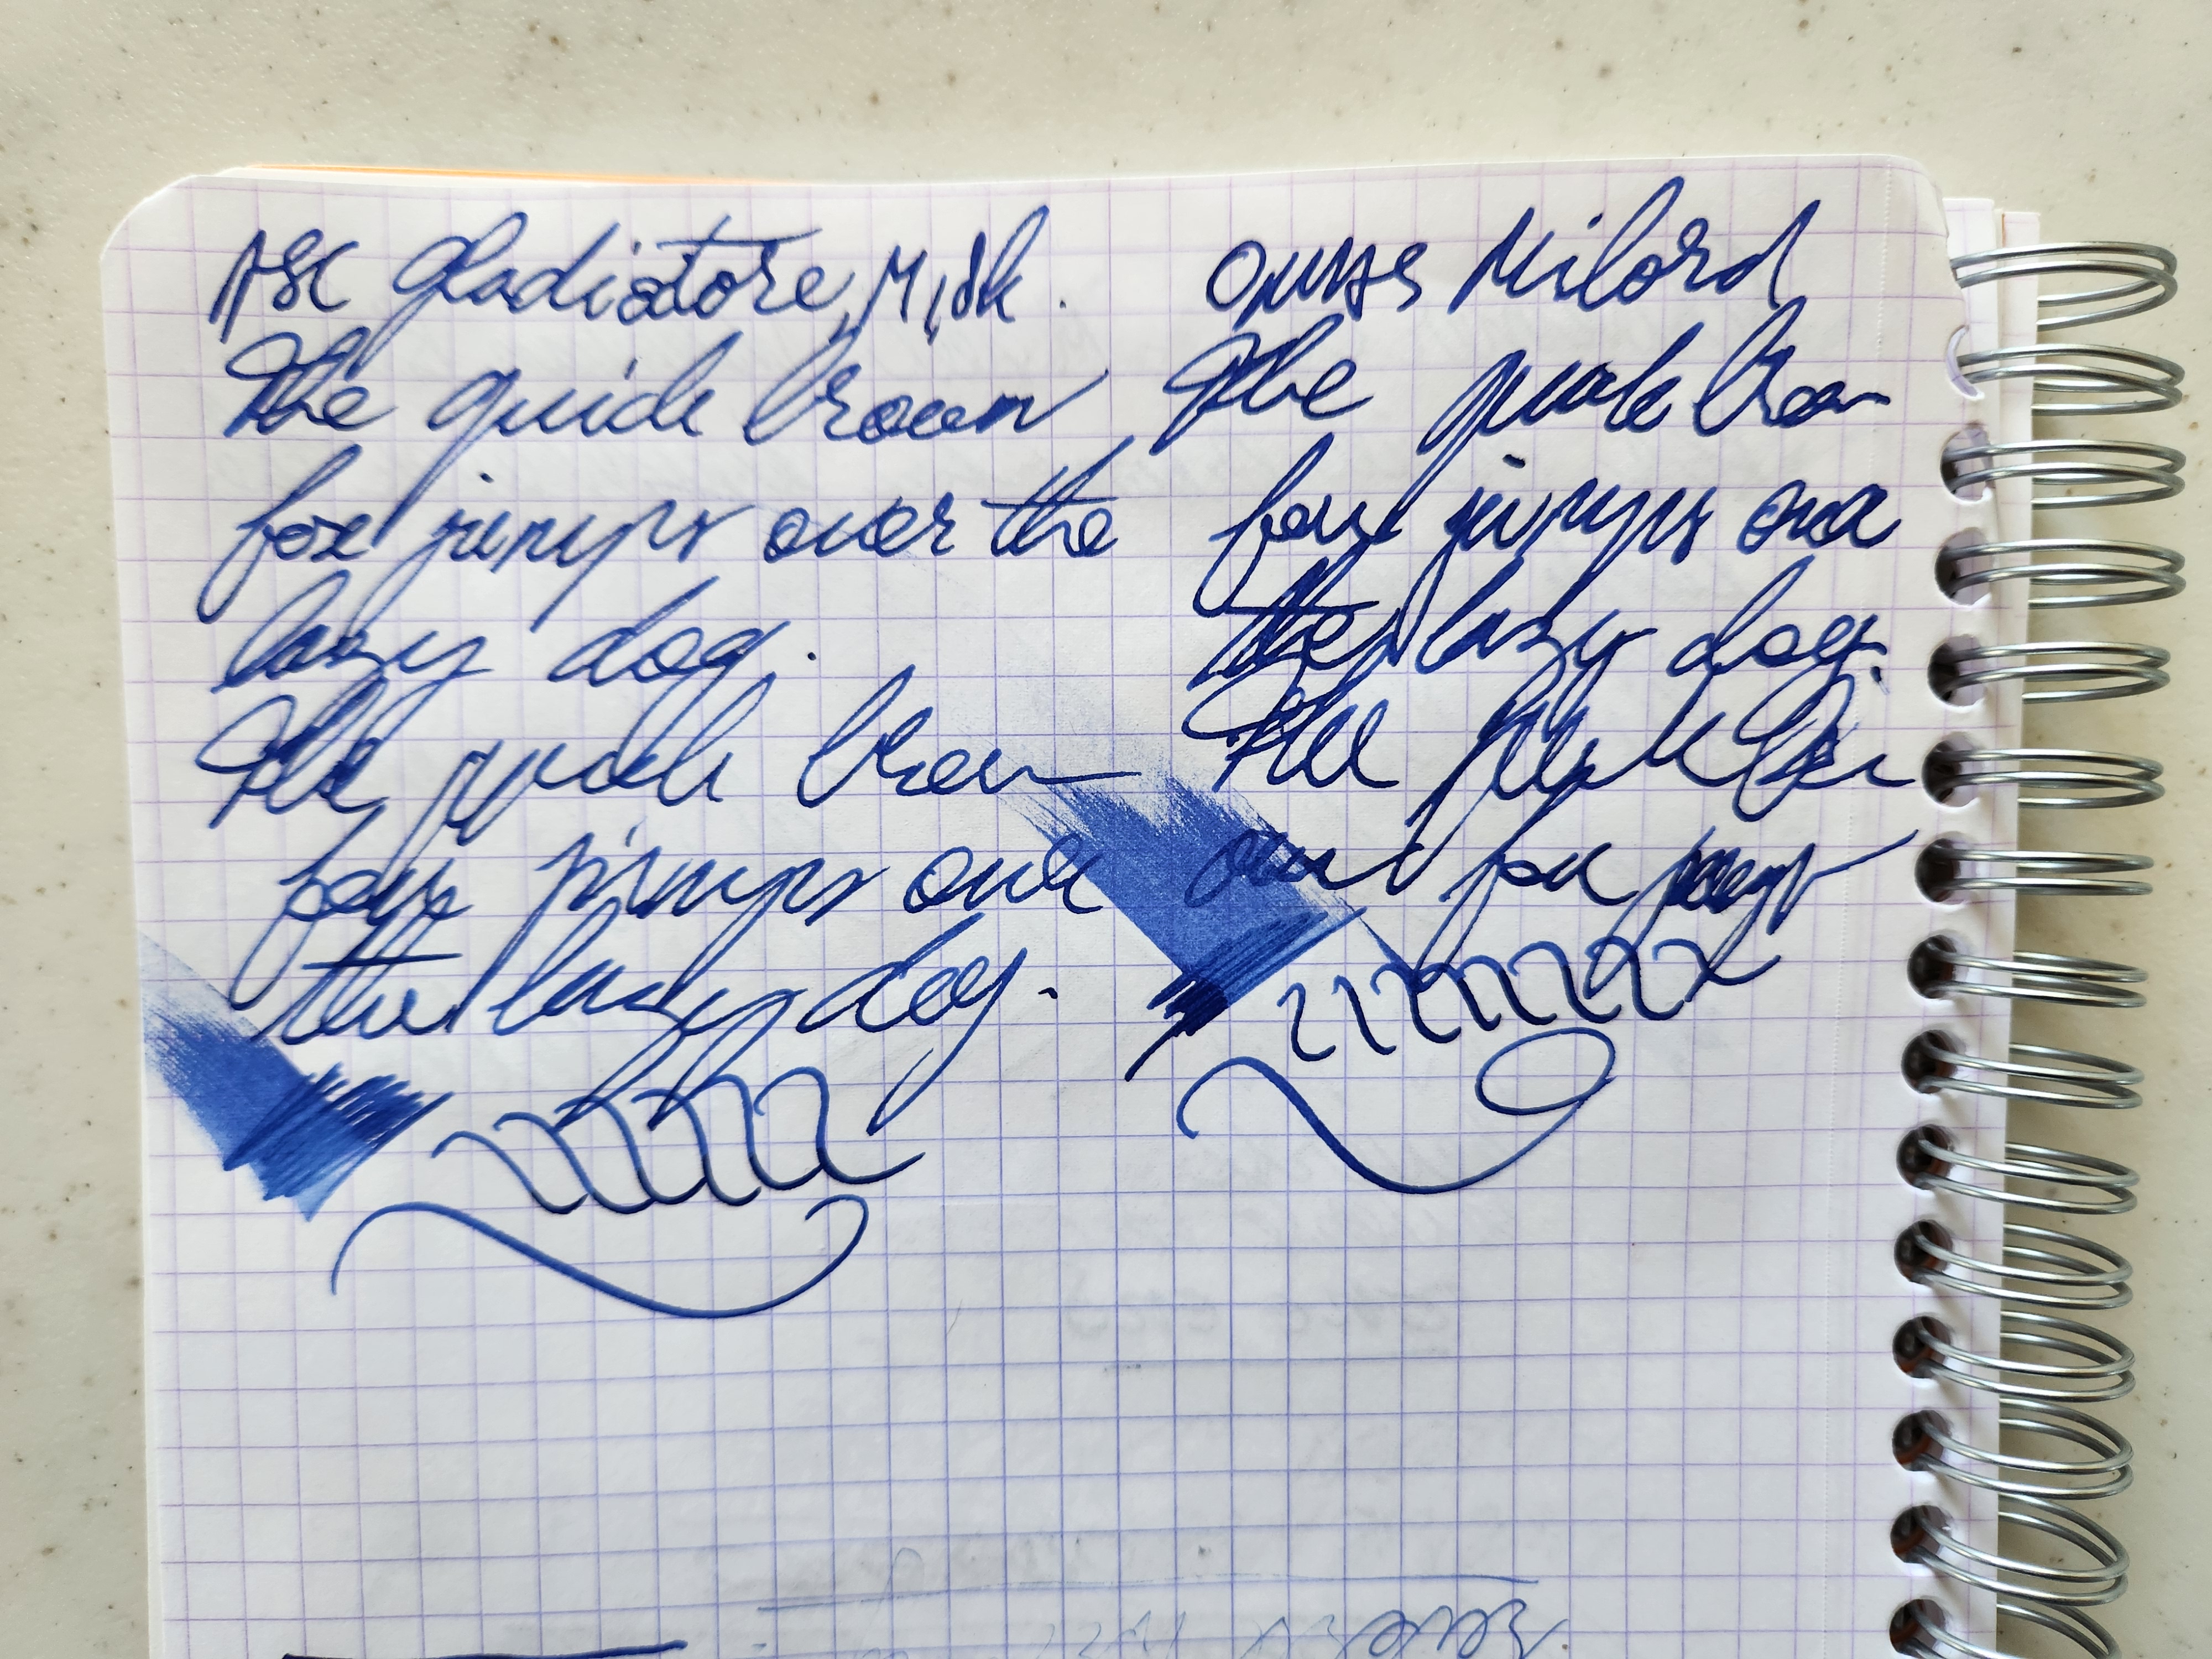 ASC Gladiatore, M, 18k.
The quick brown
fox jumps over the
lazy dog.
The quick brown
fox jumps over
the lazy dog.
Omas Milord
The quick brown
fox jumps over
the lazy dog.
The
fox